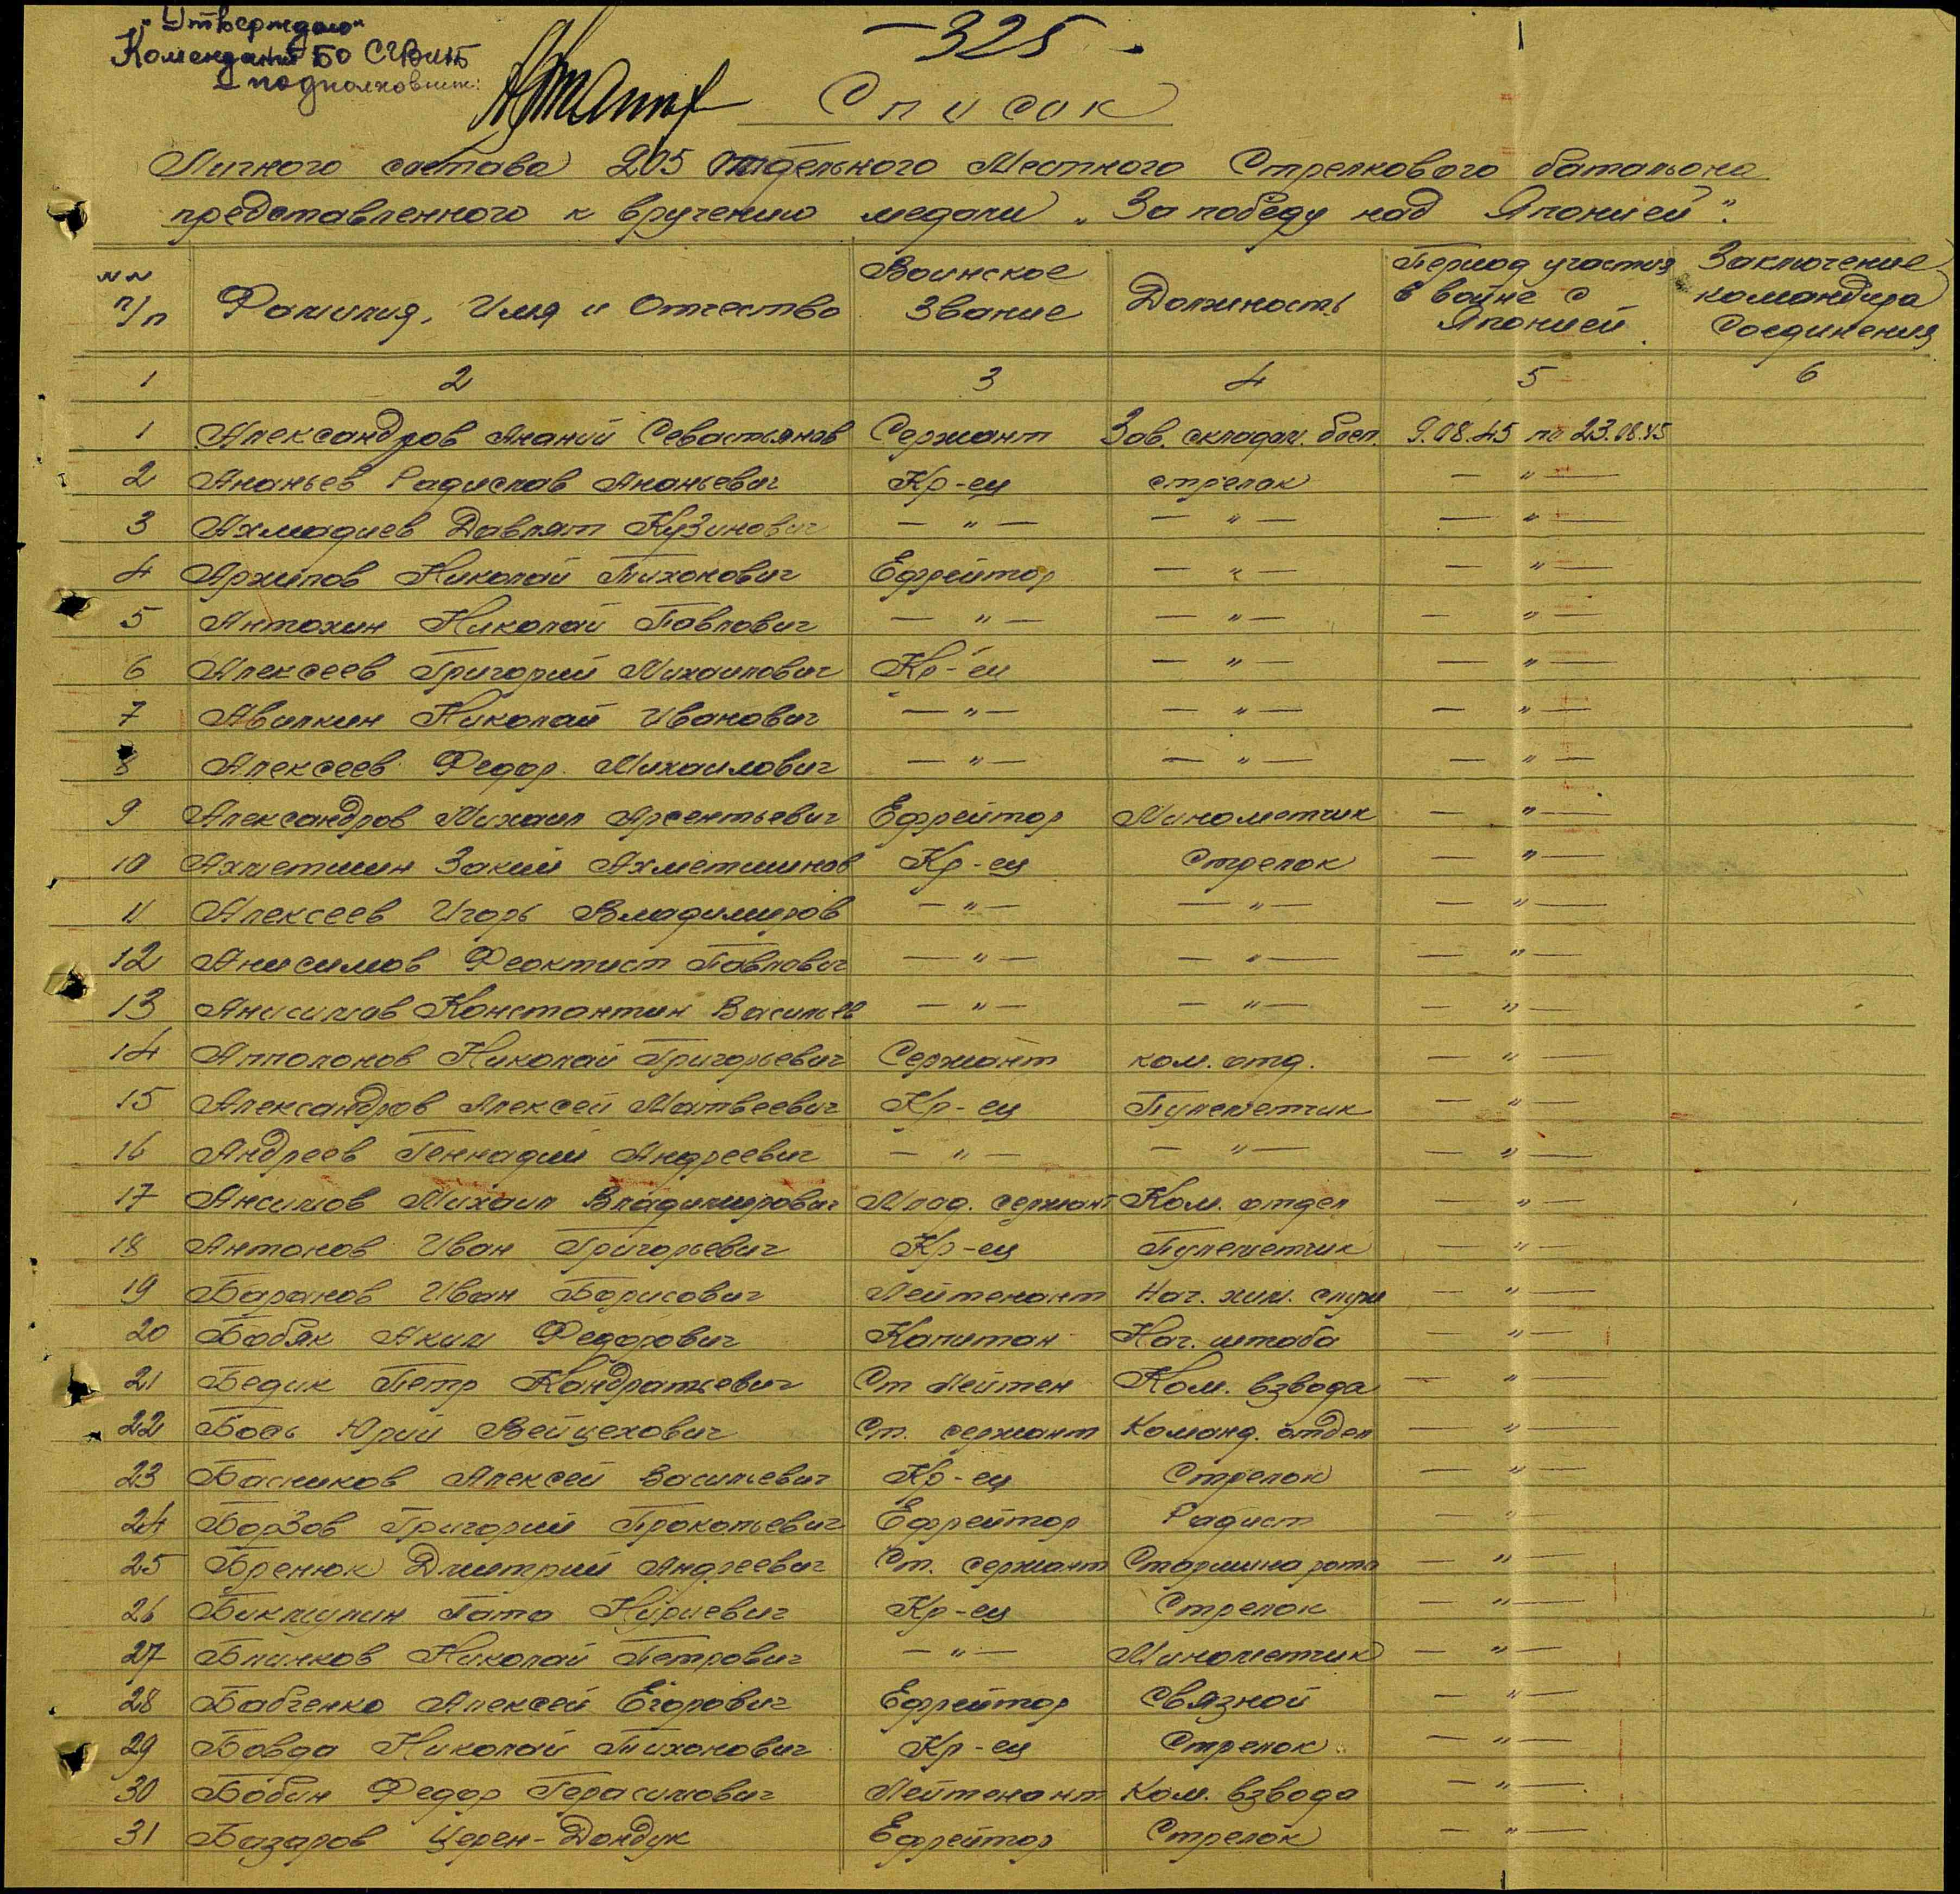 "Утверждаю"
Комендант БО
подполковник:
— 325 .
Список
Личного состава 205 отдельного Местного Стрелкового батальона
представленного к вручению медали „За победу над Японией".
№ № п/п Фамилия, Имя и Отчество Воинское Звание Должность Период участия в войне с Японией Заключение командира Соединения
1 2 3 4 5 6
1 Александров Ананий Севастьянов Сержант Зав. складом. боеп. 9.08.45 по 23.08.45
2 Ананьев Радислав Ананьевич Кр-ец стрелок — " —
3 Ахмадиев Давлят Кузинович — " — — " — — " —
4 Архипов Николай Тихонович Ефрейтор — " — — " —
5 Антохин Николай Павлович — " — — " — — " —
6 Алексеев Григорий Михаилович Кр-ец — " — — " —
7 Авилкин Николай Иванович — " — — " — — " —
8 Алексеев Федор Михаилович — " — — " — — " —
9 Александров Михаил Арсентьевич Ефрейтор Минометчик — " —
10 Ахметшин Закий Ахметшинов Кр-ец Стрелок — " —
11 Алексеев Игорь Владимиров — " — — " — — " —
12 Анисимов Феоктист Павлович — " — — " — — " —
13 Анисимов Константин Васильев — " — — " — — " —
14 Апполонов Николай Григорьевич Сержант ком. отд. — " —
15 Александров Алексей Матвеевич Кр-ец Пулеметчик — " —
16 Андреев Геннадий Андреевич — " — — " — — " —
17 Ансимов Михаил Владимирович Млад. сержант Ком. отдел — " —
18 Антонов Иван Григорьевич Кр-ец Пулеметчик — " —
19 Баранов Иван Борисович Лейтенант Нач. хим. служ — " —
20 Бабяк Аким Федорович Капитан Нач. штаба — " —
21 Бедик Петр Кондратьевич Ст Лейтен Ком. взвода — " —
22 Бось Юрий Вейцехович Ст. сержант Команд. отдел — " —
23 Басников Алексей Васильевич Кр-ец Стрелок — " —
24 Борзов Григорий Прокопьевич Ефрейтор Радист — " —
25 Бренюк Дмитрий Андреевич Ст. сержант Старшина роты — " —
26 Бикмулин Гата Нуриевич Кр-ец Стрелок — " —
27 Блинков Николай Петрович — " — Минометчик — " —
28 Бабченко Алексей Егорович Ефрейтор Связной — " —
29 Бовда Николай Тихонович Кр-ец Стрелок — " —
30 Бобин Федор Герасимович Лейтенант Ком. взвода — " —
31 Базаров Церен-Дондук Ефрейтор Стрелок — " —